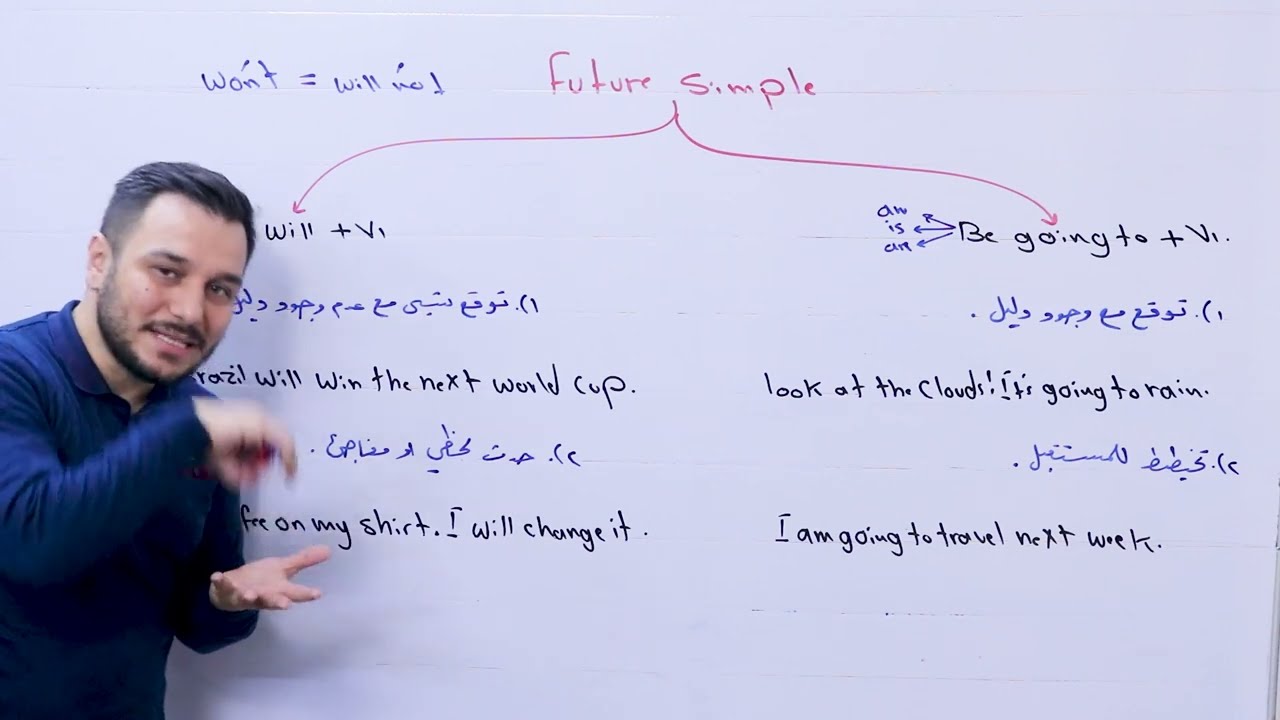 won't = will not
Future Simple
will + V1
am
is
are
Be going to + V1.
1). توقع شيء مع عدم وجود دليل
1). توقع مع وجود دليل .
will win the next world cup.
look at the clouds! It's going to rain.
2). حدث لحظي او مفاجئ .
2). تخطيط للمستقبل .
on my shirt. I will change it.
I am going to travel next week.